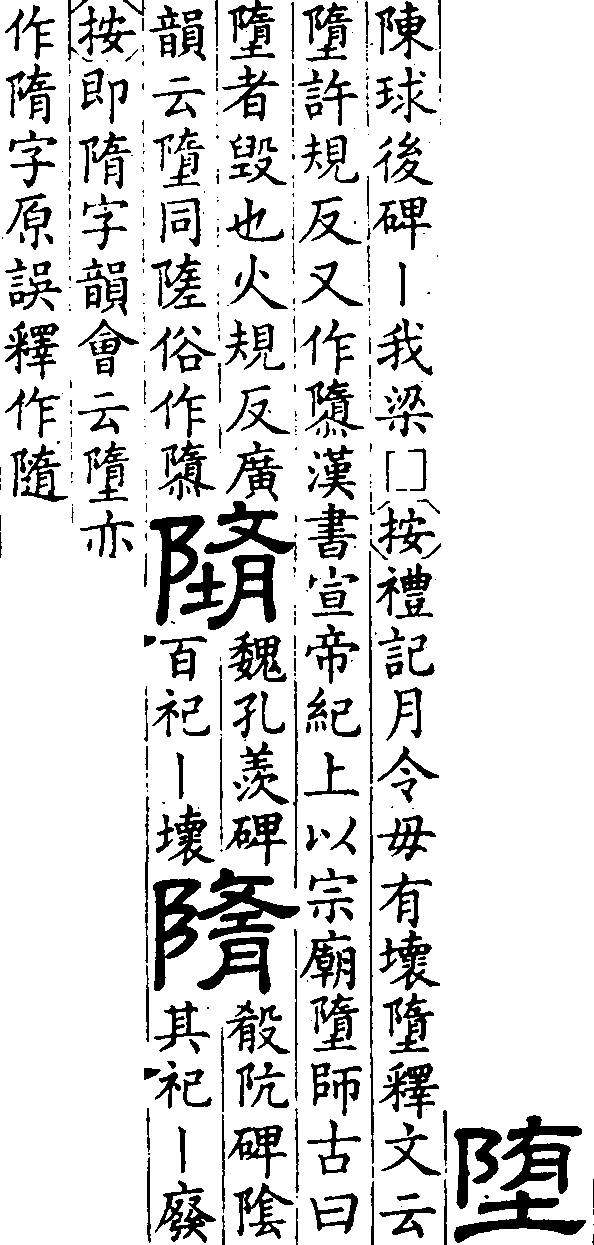 堕
陳球後碑丨我梁□按禮記月令毋有壞墮釋文云
墮許規反又作隳漢書宣帝紀上以宗廟墮師古曰
墮者毀也火規反廣
韻云墮同俗作隳
墮
魏孔羨碑
百祀丨壞
隋
殽阬碑陰
其祀丨廢
按即隋字韻會云墮亦
作隋字原誤釋作隨